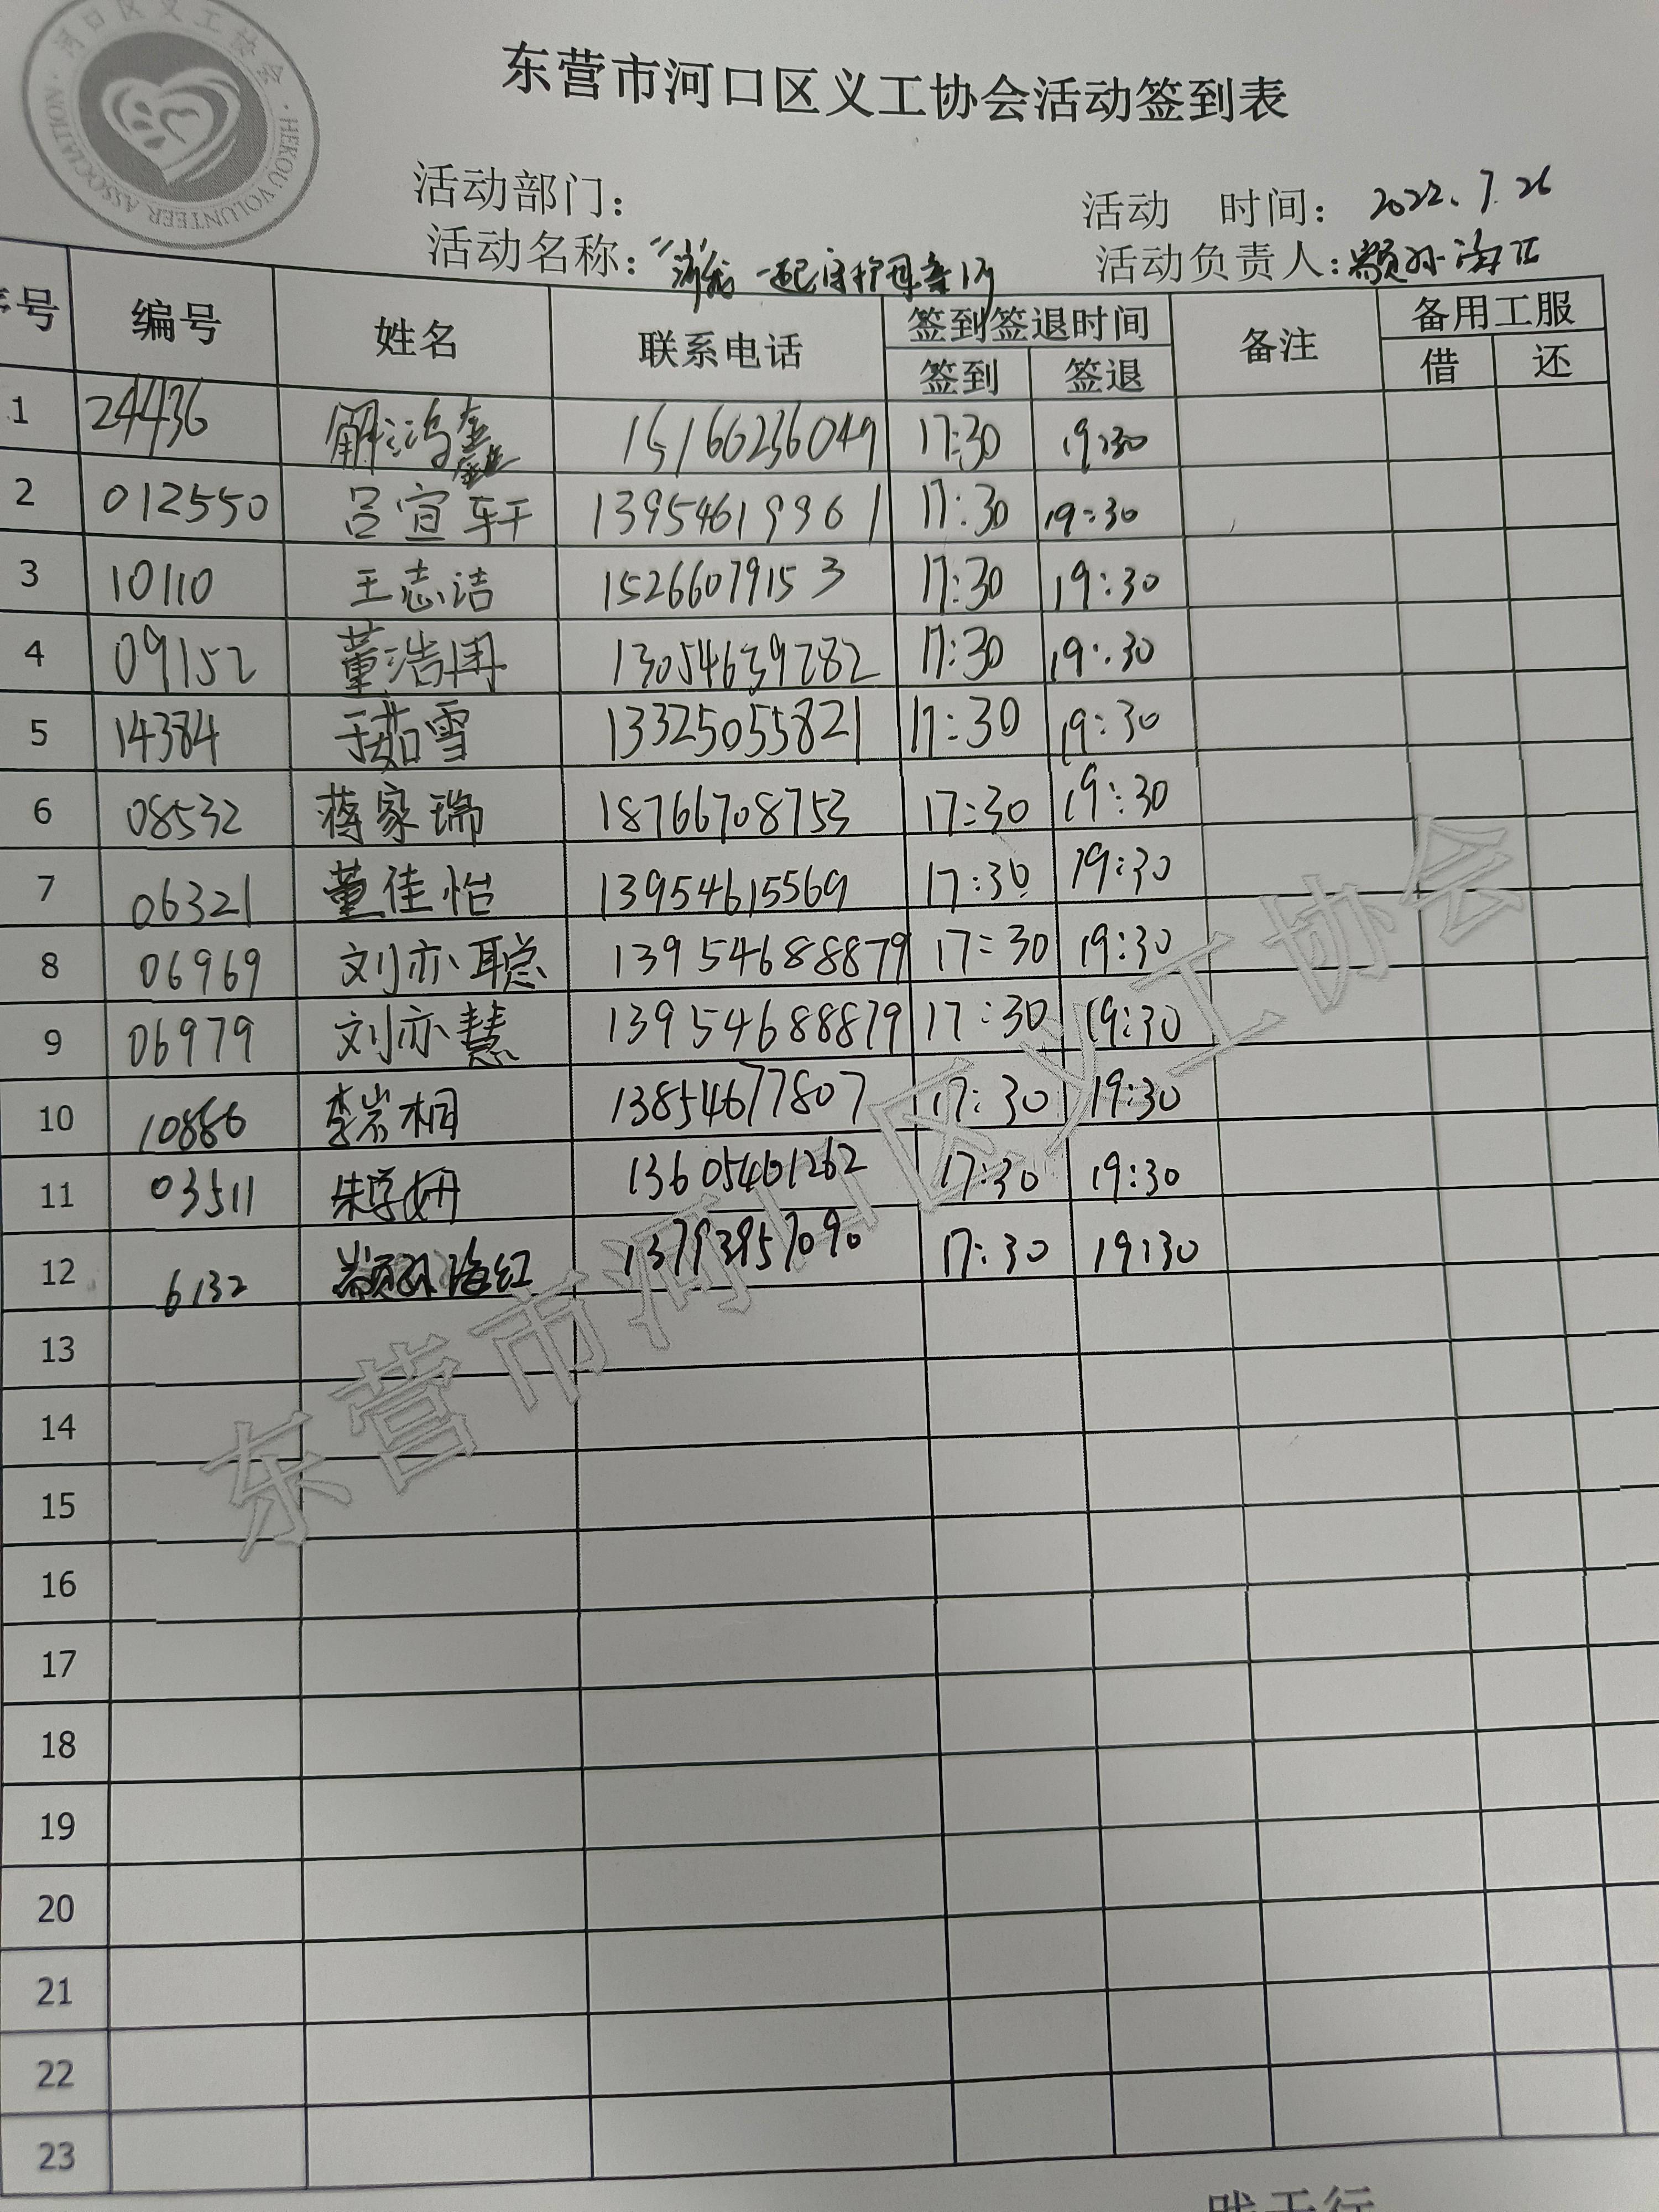 河口区义工协会
HEKOU VOLUNTEER ASSOCIATION
东营市河口区义工协会活动签到表
活动部门: 活动 时间: 2022.7.26
活动名称: 一起守护母亲河 活动负责人: 颛孙海红
序号 编号 姓名 联系电话 签到签退时间 备注 备用工服
签到 签退 借 还
1 24436 解鸿鑫 15166236049 17:30 19:30
2 012550 吕宣轩 13954619961 17:30 19:30
3 10110 王志洁 15266079153 17:30 19:30
4 09152 董浩冉 13054639282 17:30 19:30
5 14384 于茹雪 13325055821 17:30 19:30
6 08532 蒋家瑞 18766708753 17:30 19:30
7 06321 董佳怡 13954615569 17:30 19:30
8 06969 刘亦聪 13954688879 17:30 19:30
9 06979 刘亦慧 13954688879 17:30 19:30
10 10886 李岩桐 13854677807 17:30 19:30
11 03511 朱学妍 13605461262 17:30 19:30
12 6132 颛孙海红 13793957090 17:30 19:30
13
14
15
16
17
18
19
20
21
22
23
东营市河口区义工协会
践于行